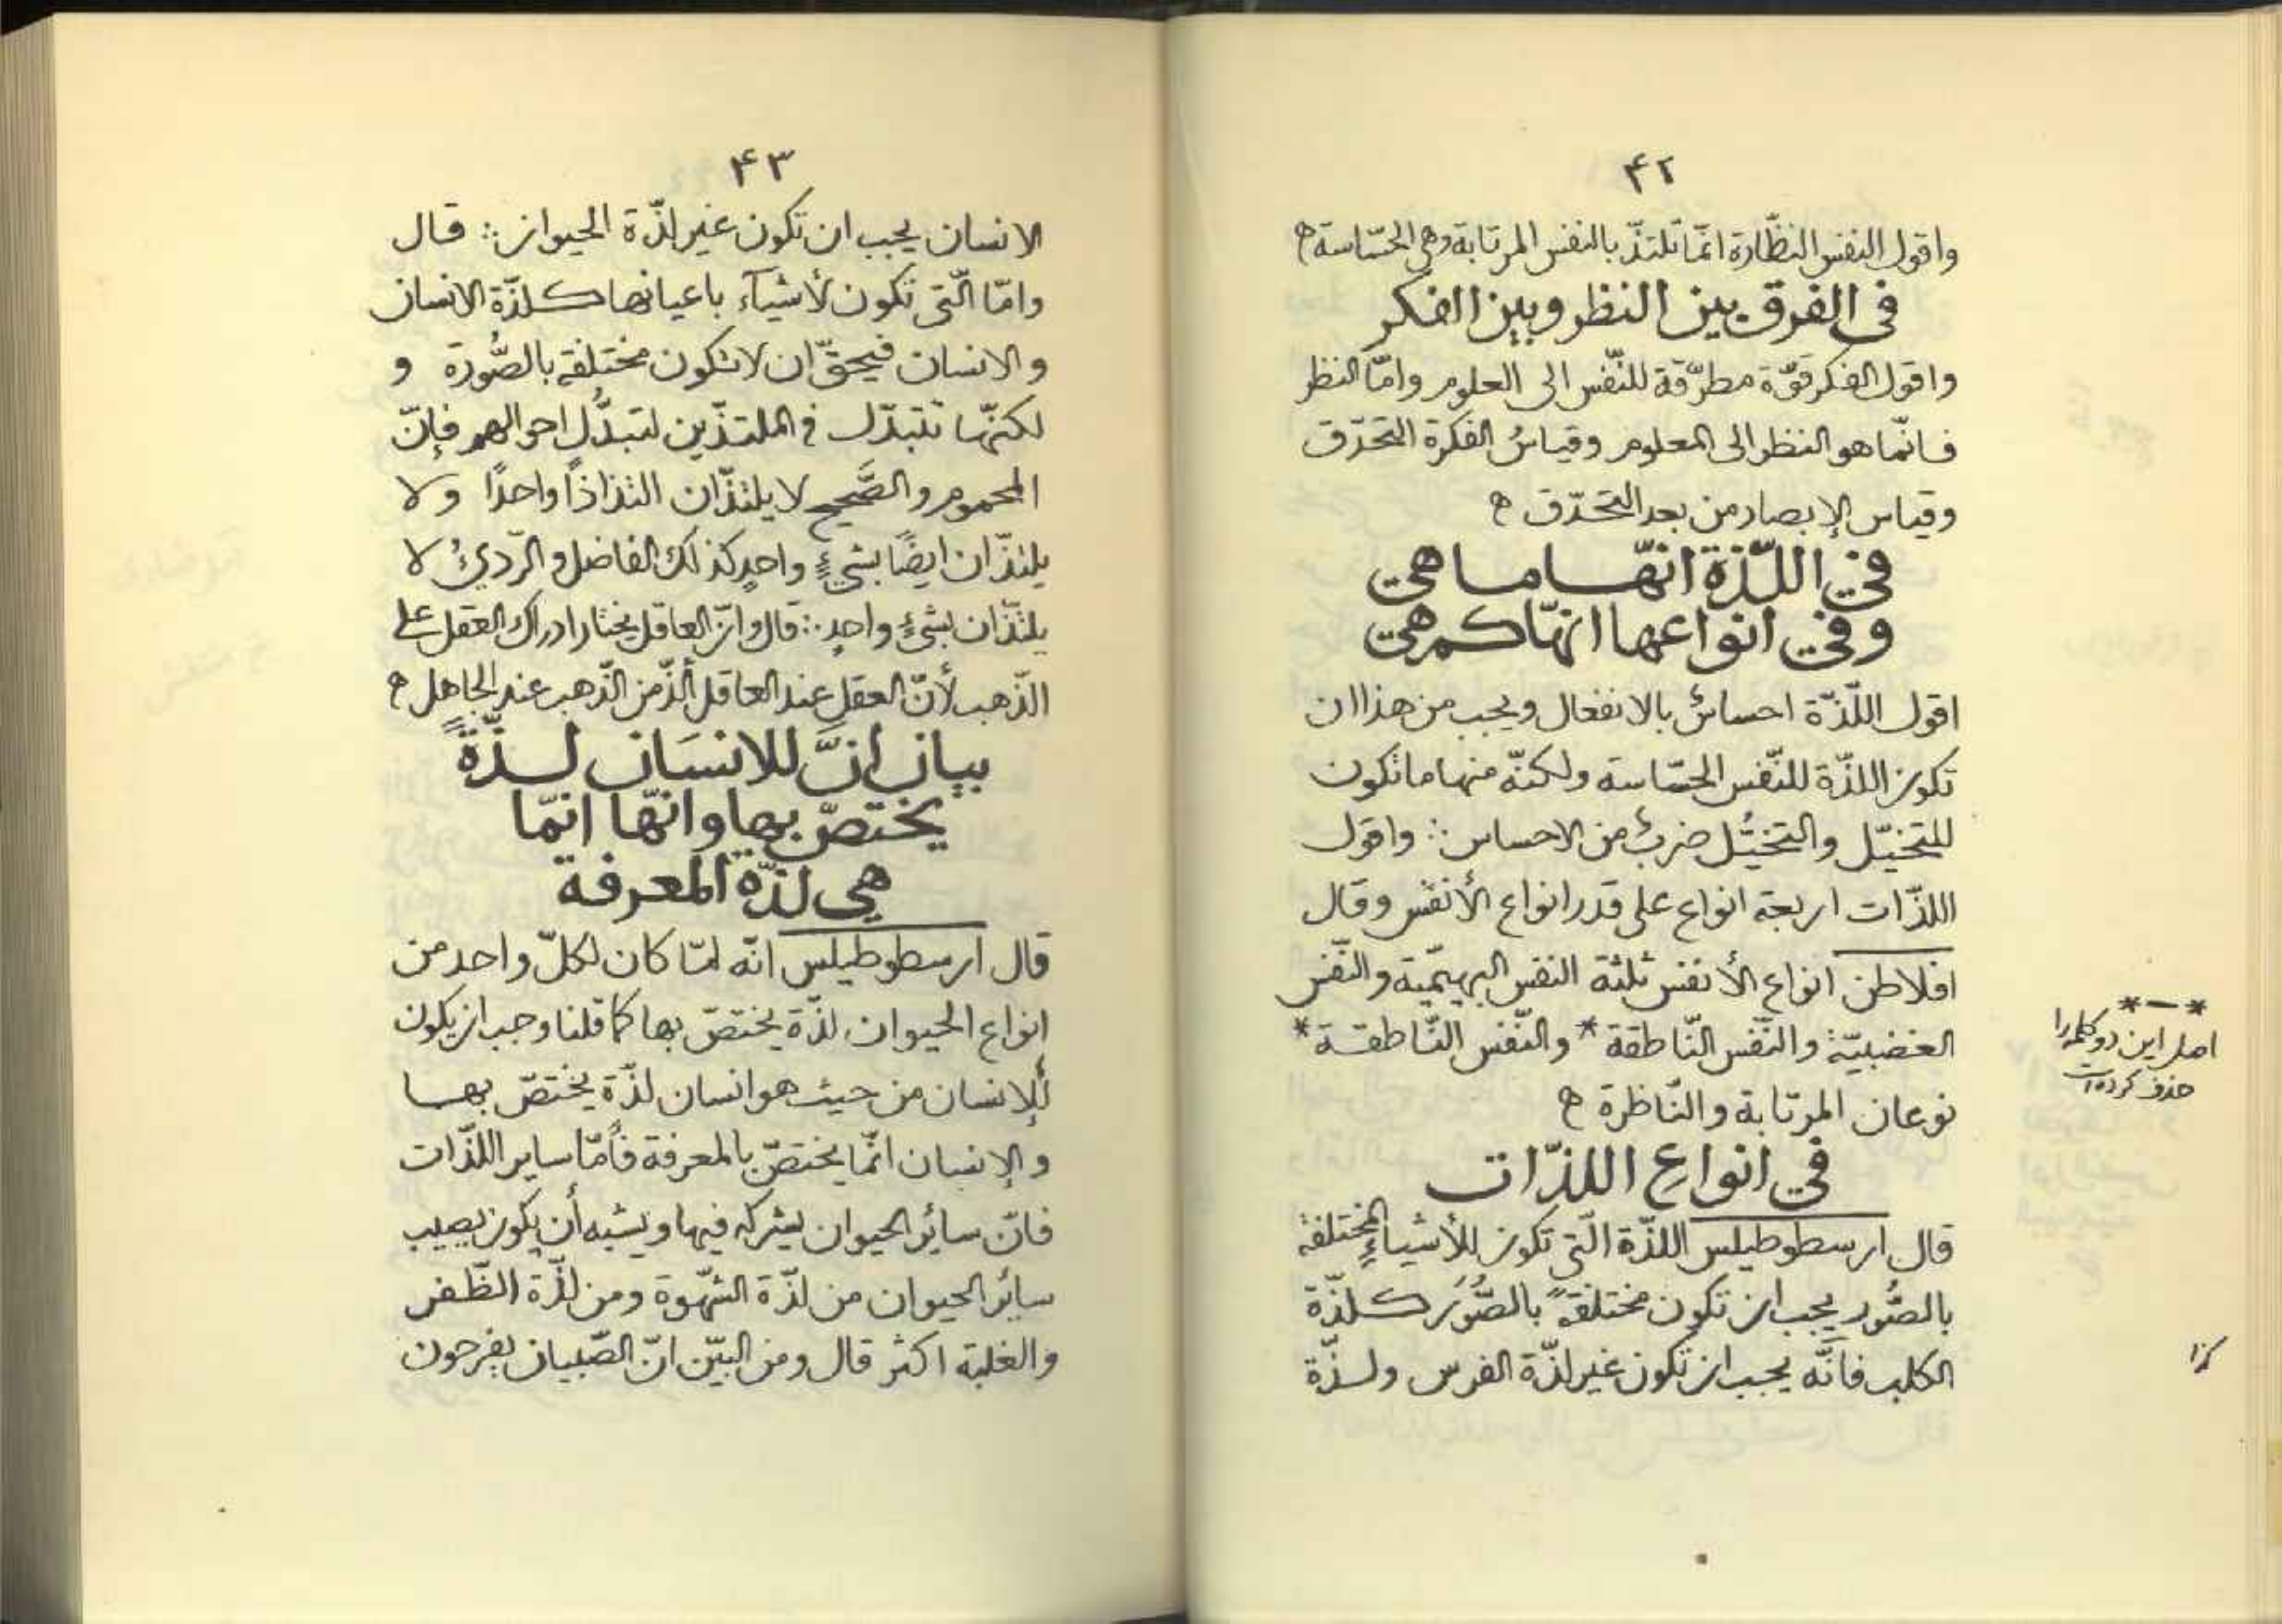 ۴۲
واقول النفس النظّارة انّما تلتذّ بالنفس المرتابة وهى الحسّاسة ه
فى الفرق بين النظر وبين الفكر
واقول الفكر قوّة مطرّقة للنّفس الى العلوم وامّا النظر
فانّما هو النظر الى المعلوم وقياسُ الفكرة التحدّق
وقياس الإبصار من بعد التحدّق ه
في اللّذّة انّها ما هي
وفي انواعها انّها كم هي
اقول اللّذّة احساسٌ بالانفعال ويجب من هذا ان
تكون اللذّة للنّفس الحسّاسة ولكنّه منها ما تكون
للتخيّل والتخيُّل ضربٌ من الاحساس ∴ واقول
اللذّات اربعة انواع على قدر انواع الأنفس وقال
افلاطن انواع الأنفس ثلثة النفس البهيميّة والنّفس
الغضبيّة والنّفس النّاطقة * والنّفس النّاطقة *
نوعان المرتابة والنّاظرة ه
في انواع اللذّات
قال ارسطوطيلس اللذّة الّتي تكون للأشياءِ المختلفة
بالصُّور يجب ان تكون مختلفةً بالصُّوَر كلذّة
الكلب فانّه يجب ان تكون غير لذّة الفرس ولذّة
*—*
اصل این دو کلمه را
حذف کرده است
کذا
۴۳
الانسان يجب ان تكون غير لذّة الحيوان ∴ قال
وامّا الّتي تكون لأشيآء باعيانها كلذّة الانسان
والانسان فيحقّ ان لا تكون مختلفة بالصُّورة و
لكنّها تتبدّل في الملتذّين لتبدُّل احوالهم فإنّ
المحموم والصَّحيح لا يلتذّان التذاذاً واحدًا ولا
يلتذّان ايضًا بشيءٍ واحدٍ كذلك الفاضل والرّديُ لا
يلتذّان بشيءٍ واحدٍ ∴ قال وانّ العاقل يختار ادراك العقل على
الذّهب لأنّ العقل عند العاقل ألذّ من الذّهب عند الجاهل ه
بيان انَّ للانسَان لذّةً
يختصّ بها وانّها انّما
هي لذّة المعرفة
قال ارسطوطيلس انّه لمّا كان لكلّ واحد من
انواع الحيوان لذّة يختصّ بها كما قلنا وجب ان يكون
للإنسان من حيث هو انسان لذّة يختصّ بها
والإنسان انّما يختصّ بالمعرفة فأمّا ساير اللذّات
فانّ سائر الحيوان يشركه فيها ويشبه أن يكون يصيب
سائر الحيوان من لذّة الشّهوة ومن لذّة الظّفر
والغلبة اكثر قال ومن البيّن انّ الصّبيان يفرحون